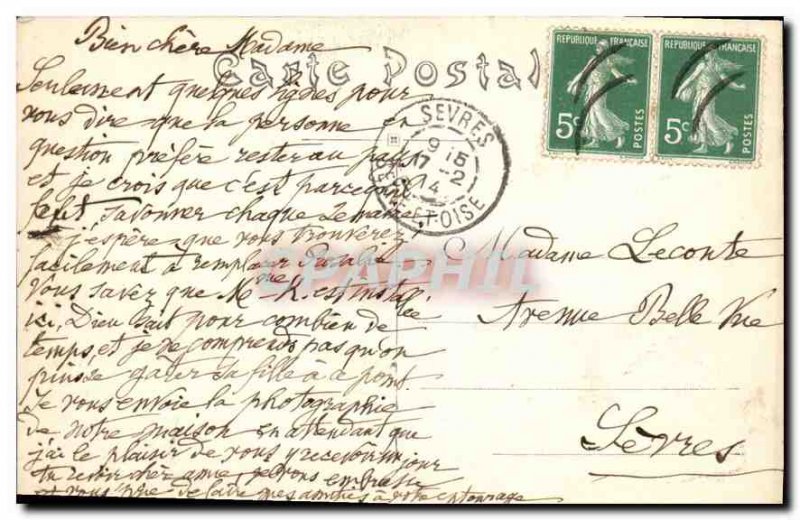 Carte Postale
Bien chère Madame
Seulement quelques lignes pour
vous dire que la personne en
question préfère rester au pays
et je crois que c'est parce qu'il
faut savonner chaque semaine
j'espère que vous trouverez
facilement à remplacer
vous savez que Mme K. est installée
ici, Dieu sait pour combien de
temps, et je ne comprends pas qu'on
puisse gâter sa fille à ce point.
Je vous envoie la photographie
de notre maison en attendant que
j'ai le plaisir de vous y recevoir un jour
Au revoir chère amie, je vous embrasse
et vous prie de faire mes amitiés à votre entourage
SEVRES
9 15
17 -2
14
ET OISE
REPUBLIQUE FRANÇAISE
5c
POSTES
REPUBLIQUE FRANÇAISE
5c
POSTES
CPAPHIL
Madame Leconte
Avenue Belle Vue
Sèvres